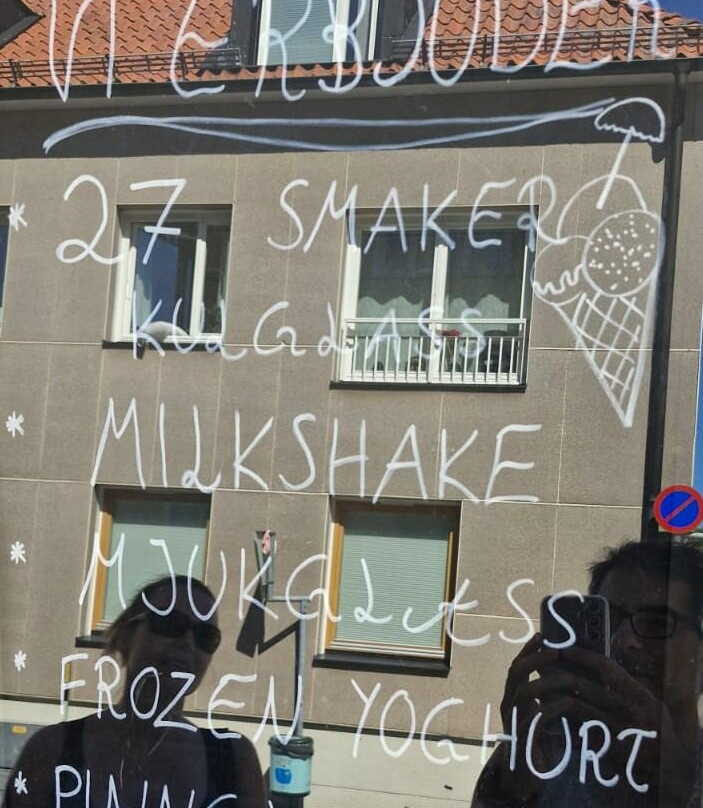 VI ERBJUDER
* 27 SMAKER
KULGLASS
* MILKSHAKE
* MJUKGLASS
* FROZEN YOGHURT
*